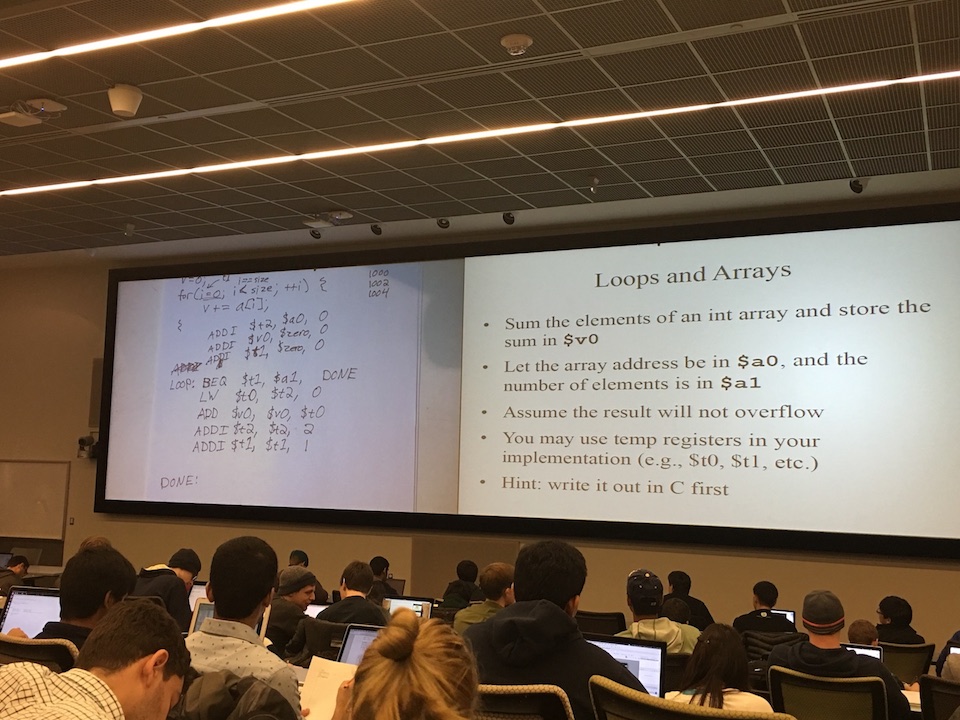 v=0; i==size
for(i=0; i<size; ++i) {
v += a[i];
}
1000
1002
1004
ADDI $t2, $a0, 0
ADDI $v0, $zero, 0
ADDI $t1, $zero, 0
LOOP: BEQ $t1, $a1, DONE
LW $t0, $t2, 0
ADD $v0, $v0, $t0
ADDI $t2, $t2, 2
ADDI $t1, $t1, 1
DONE:
Loops and Arrays
• Sum the elements of an int array and store the
sum in $v0
• Let the array address be in $a0, and the
number of elements is in $a1
• Assume the result will not overflow
• You may use temp registers in your
implementation (e.g., $t0, $t1, etc.)
• Hint: write it out in C first